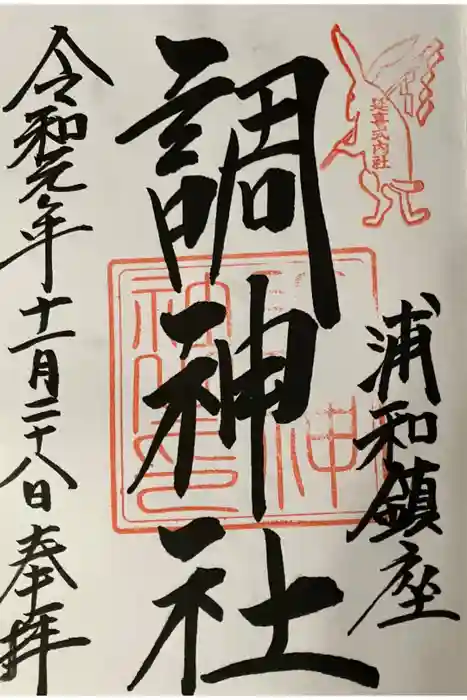 延喜式内社
浦和鎮座
調神社
令和元年十一月二十八日奉拝